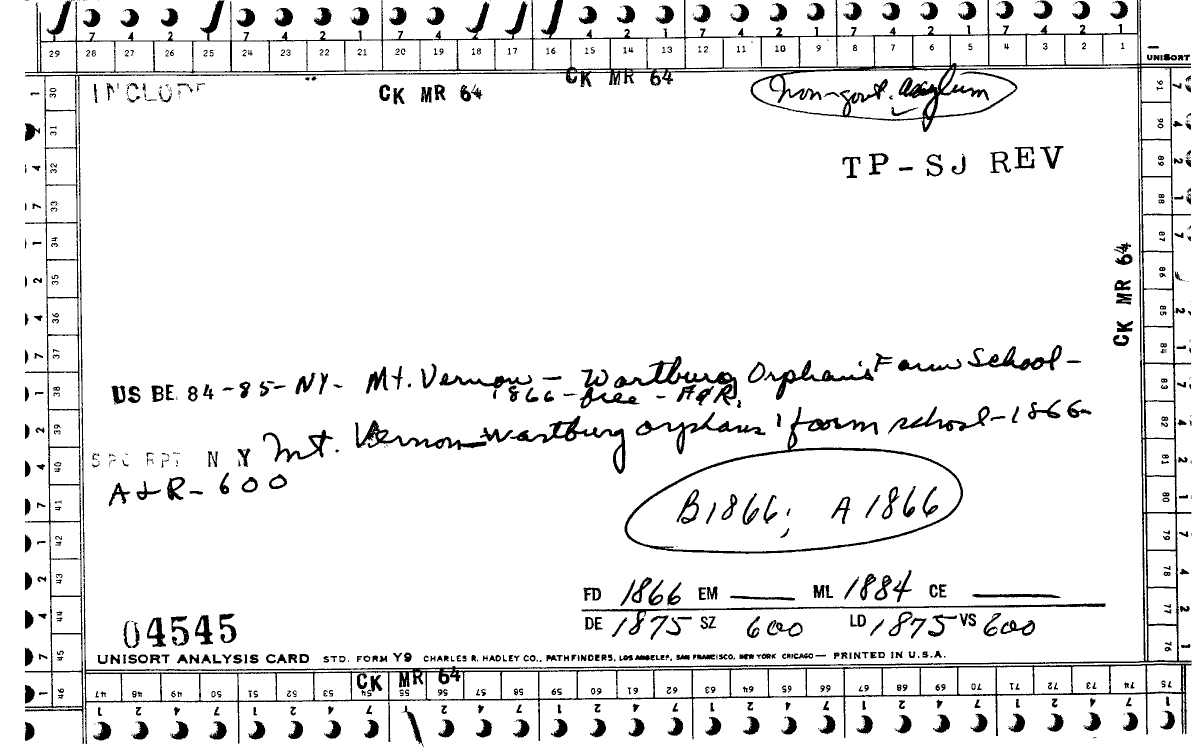 7 4 2 1 7 4 2 1 7 4 2 1 7 4 2 1 7 4 2 1 7 4 2 1 7 4 2 1
29 28 27 26 25 24 23 22 21 20 19 18 17 16 15 14 13 12 11 10 9 8 7 6 5 4 3 2 1
UNISORT
INCLUDE CK MR 64 CK MR 64 non-govt. asylum
TP-SJ REV
CK MR 64
US BE 84-85-NY- Mt. Vernon - Wartburg Orphans' Farm School -
1866-free-A&R.
SPC RPT N Y Mt. Vernon-Wartburg orphans' farm school-1866-
A&R-600
B1866; A 1866
FD 1866 EM ____ ML 1884 CE ____
DE 1875 SZ 600 LD 1875 VS 600
04545
UNISORT ANALYSIS CARD STD. FORM Y9 CHARLES R. HADLEY CO., PATHFINDERS, LOS ANGELES, SAN FRANCISCO, NEW YORK CHICAGO — PRINTED IN U.S.A.
CK MR 64
30 31 32 33 34 35 36 37 38 39 40 41 42 43 44 45 46
47 48 49 50 51 52 53 54 55 56 57 58 59 60 61 62 63 64 65 66 67 68 69 70 71 72 73 74 75
91 90 89 88 87 86 85 84 83 82 81 80 79 78 77 76